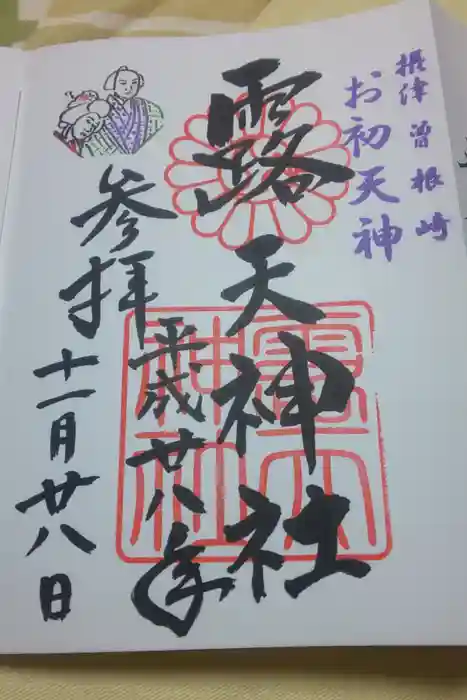 摂津曽根崎
お初天神
露天神社
平成廿八年
参拝
十一月廿八日
露天
神社